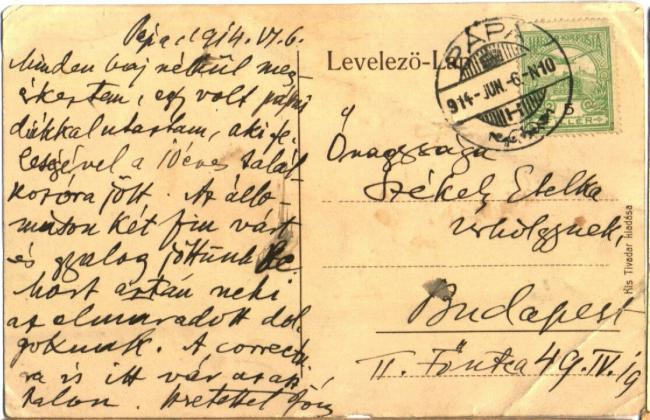 Pápa, 1914. VI. 6.
Minden baj nélkül meg-
érkeztem, egy volt pápai
diákkal utaztam, aki fe-
leségével a 10 éves talál-
kozóra jött. Az állo-
máson két fiu várt
és gyalog jöttünk be
most aztán neki
az elmaradott dol-
goknak. A correctu-
ra is itt vár az asz-
talon. Szeretettel
Levelező-Lap
PÁPA
914-JUN.-6-N10
MAGYAR KIR. POSTA
5
FILLÉR
Őnagysága
Székely Etelka
urhölgynek,
Budapest
II. Fő utca 49. IV. 19
Kis Tivadar kiadása